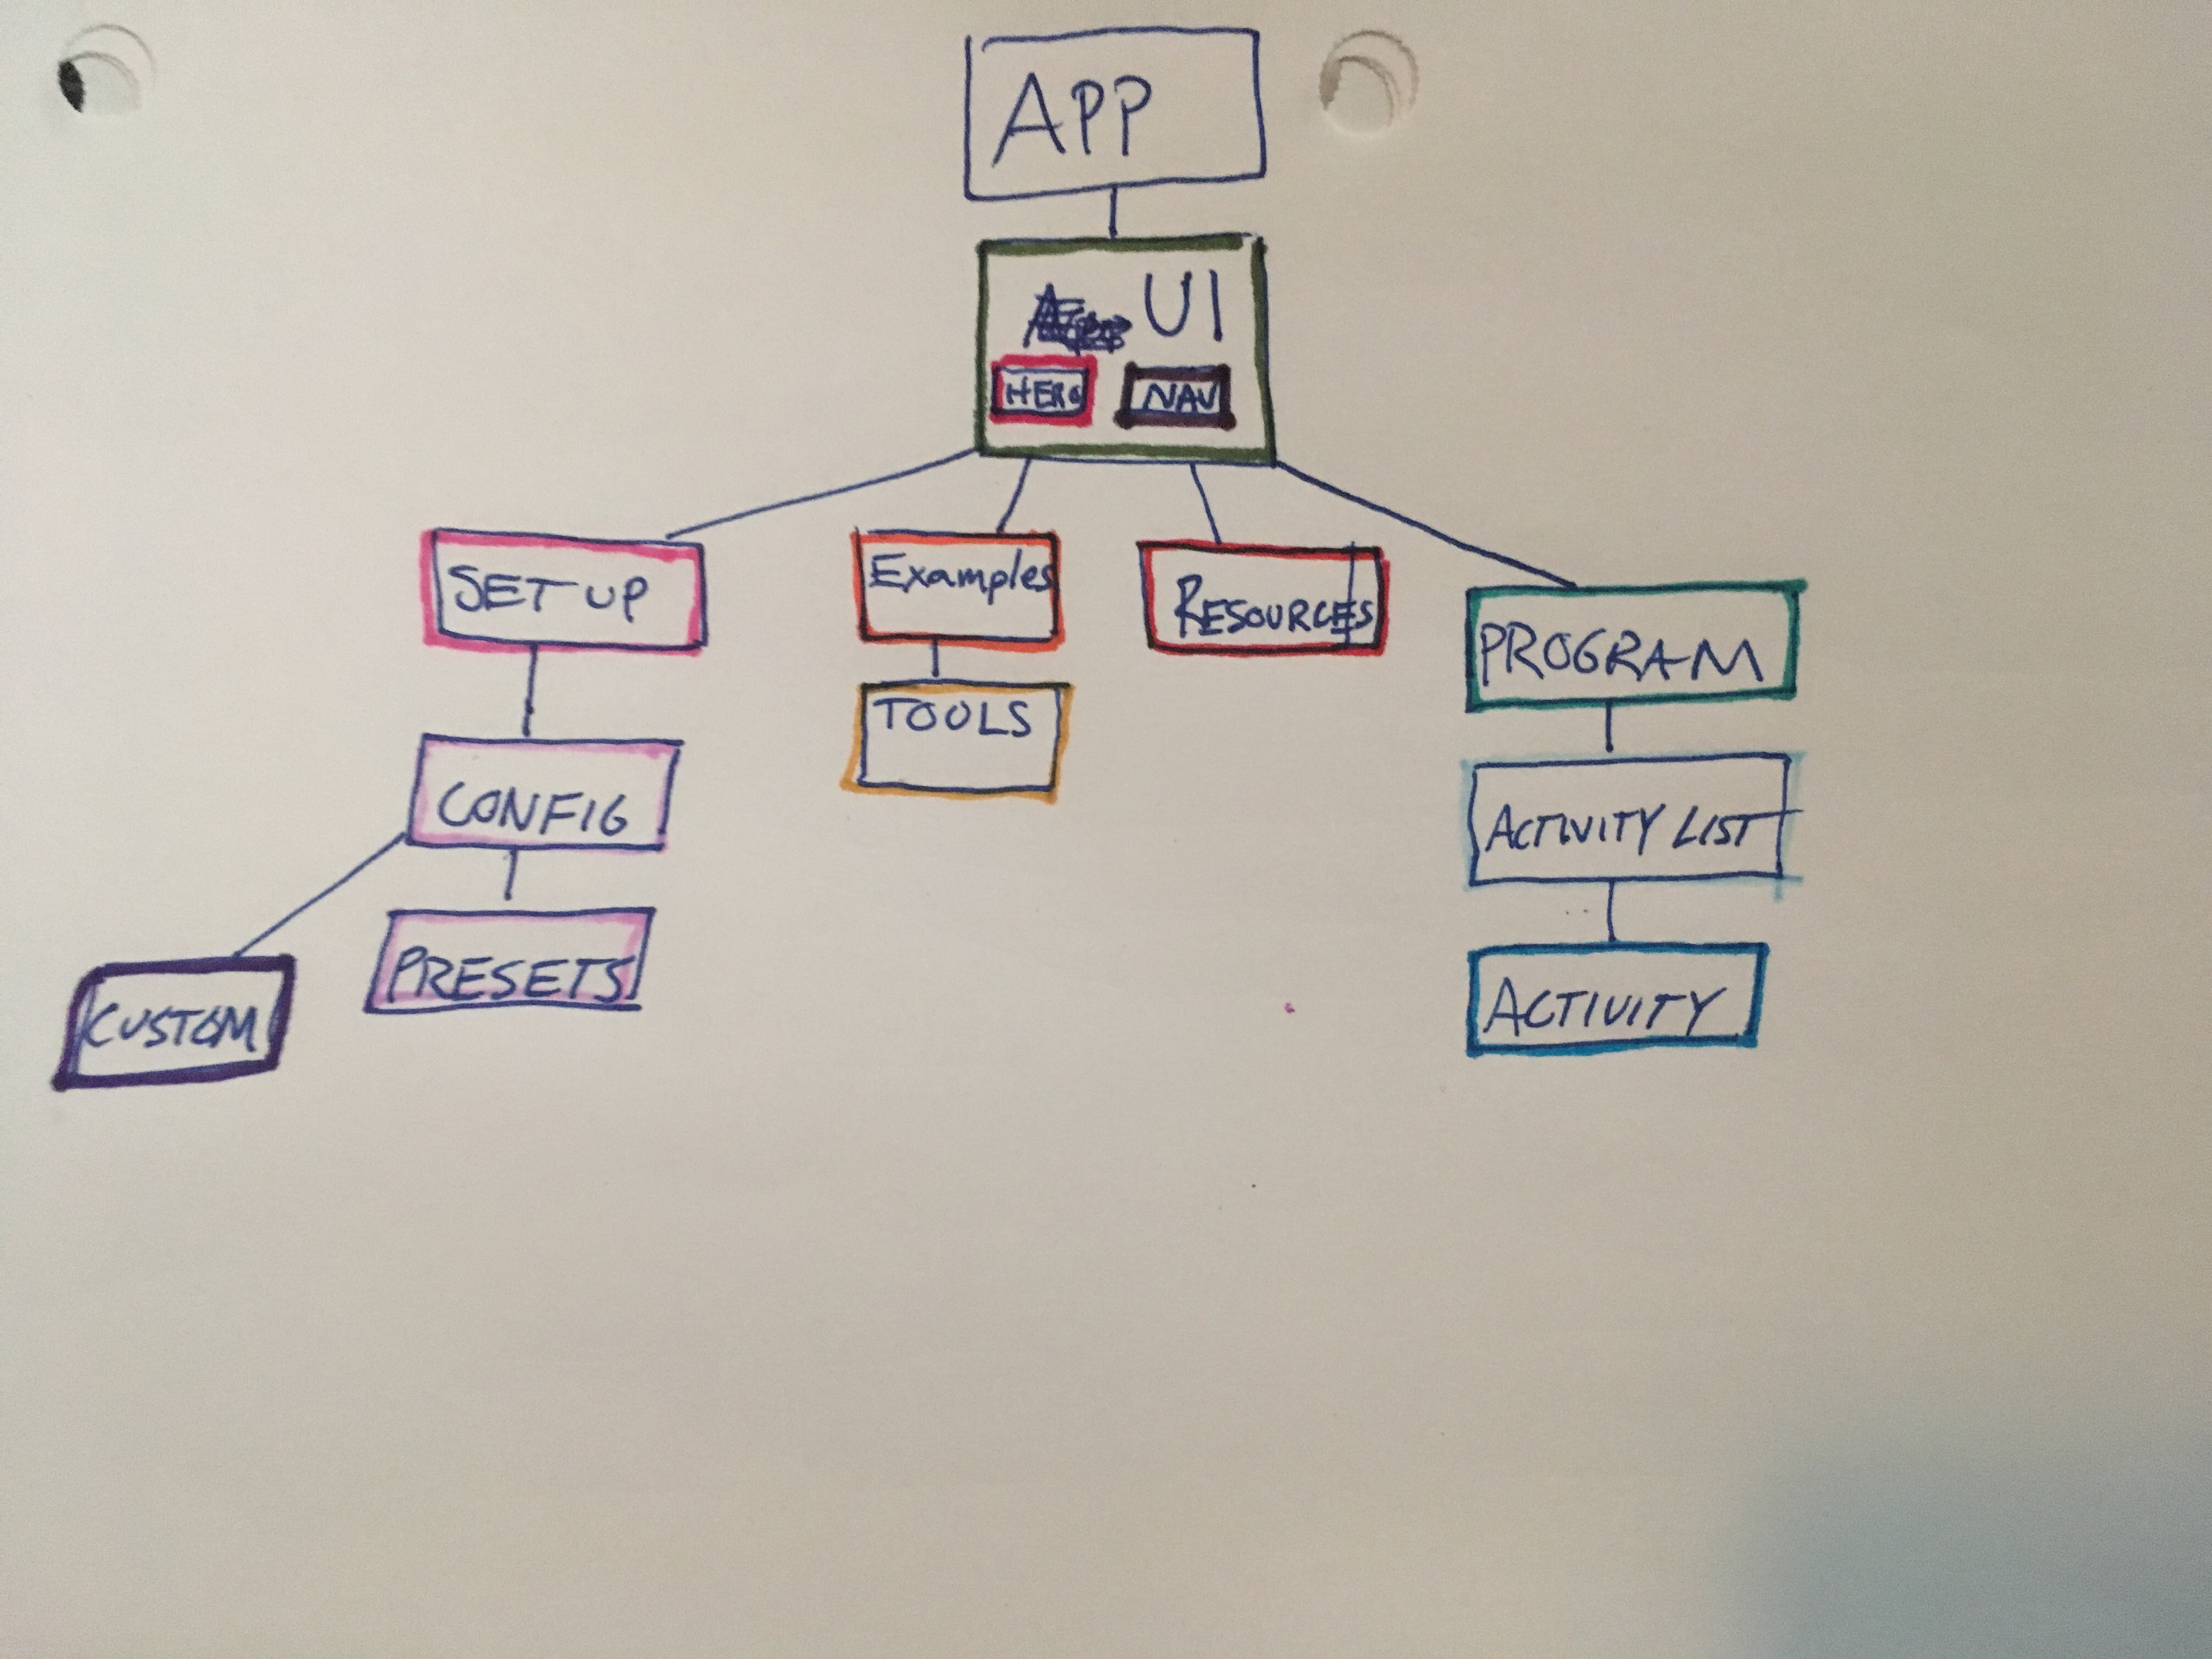 APP
UI
HERO NAV
SETUP
Examples
RESOURCES
PROGRAM
TOOLS
CONFIG
ACTIVITY LIST
PRESETS
CUSTOM
ACTIVITY